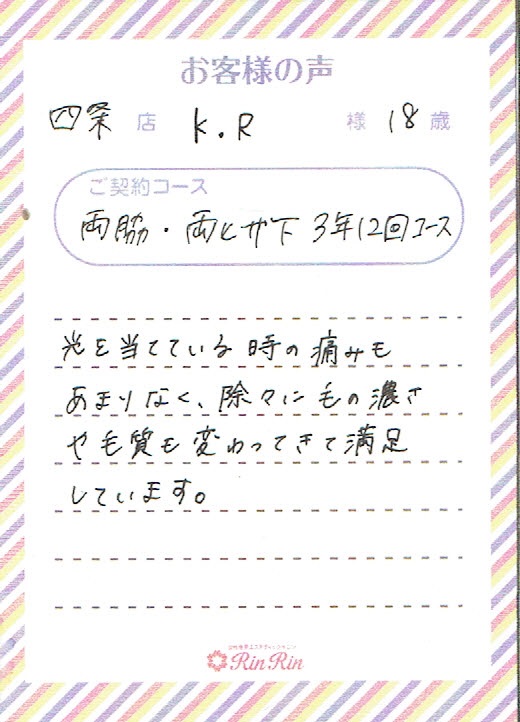 お客様の声
四条 店 K.R 様 18 歳
ご契約コース
両脇・両ヒザ下 3年12回コース
光を当てている時の痛みも
あまりなく、除々に毛の濃さ
や毛質も変わってきて満足
しています。
RinRin